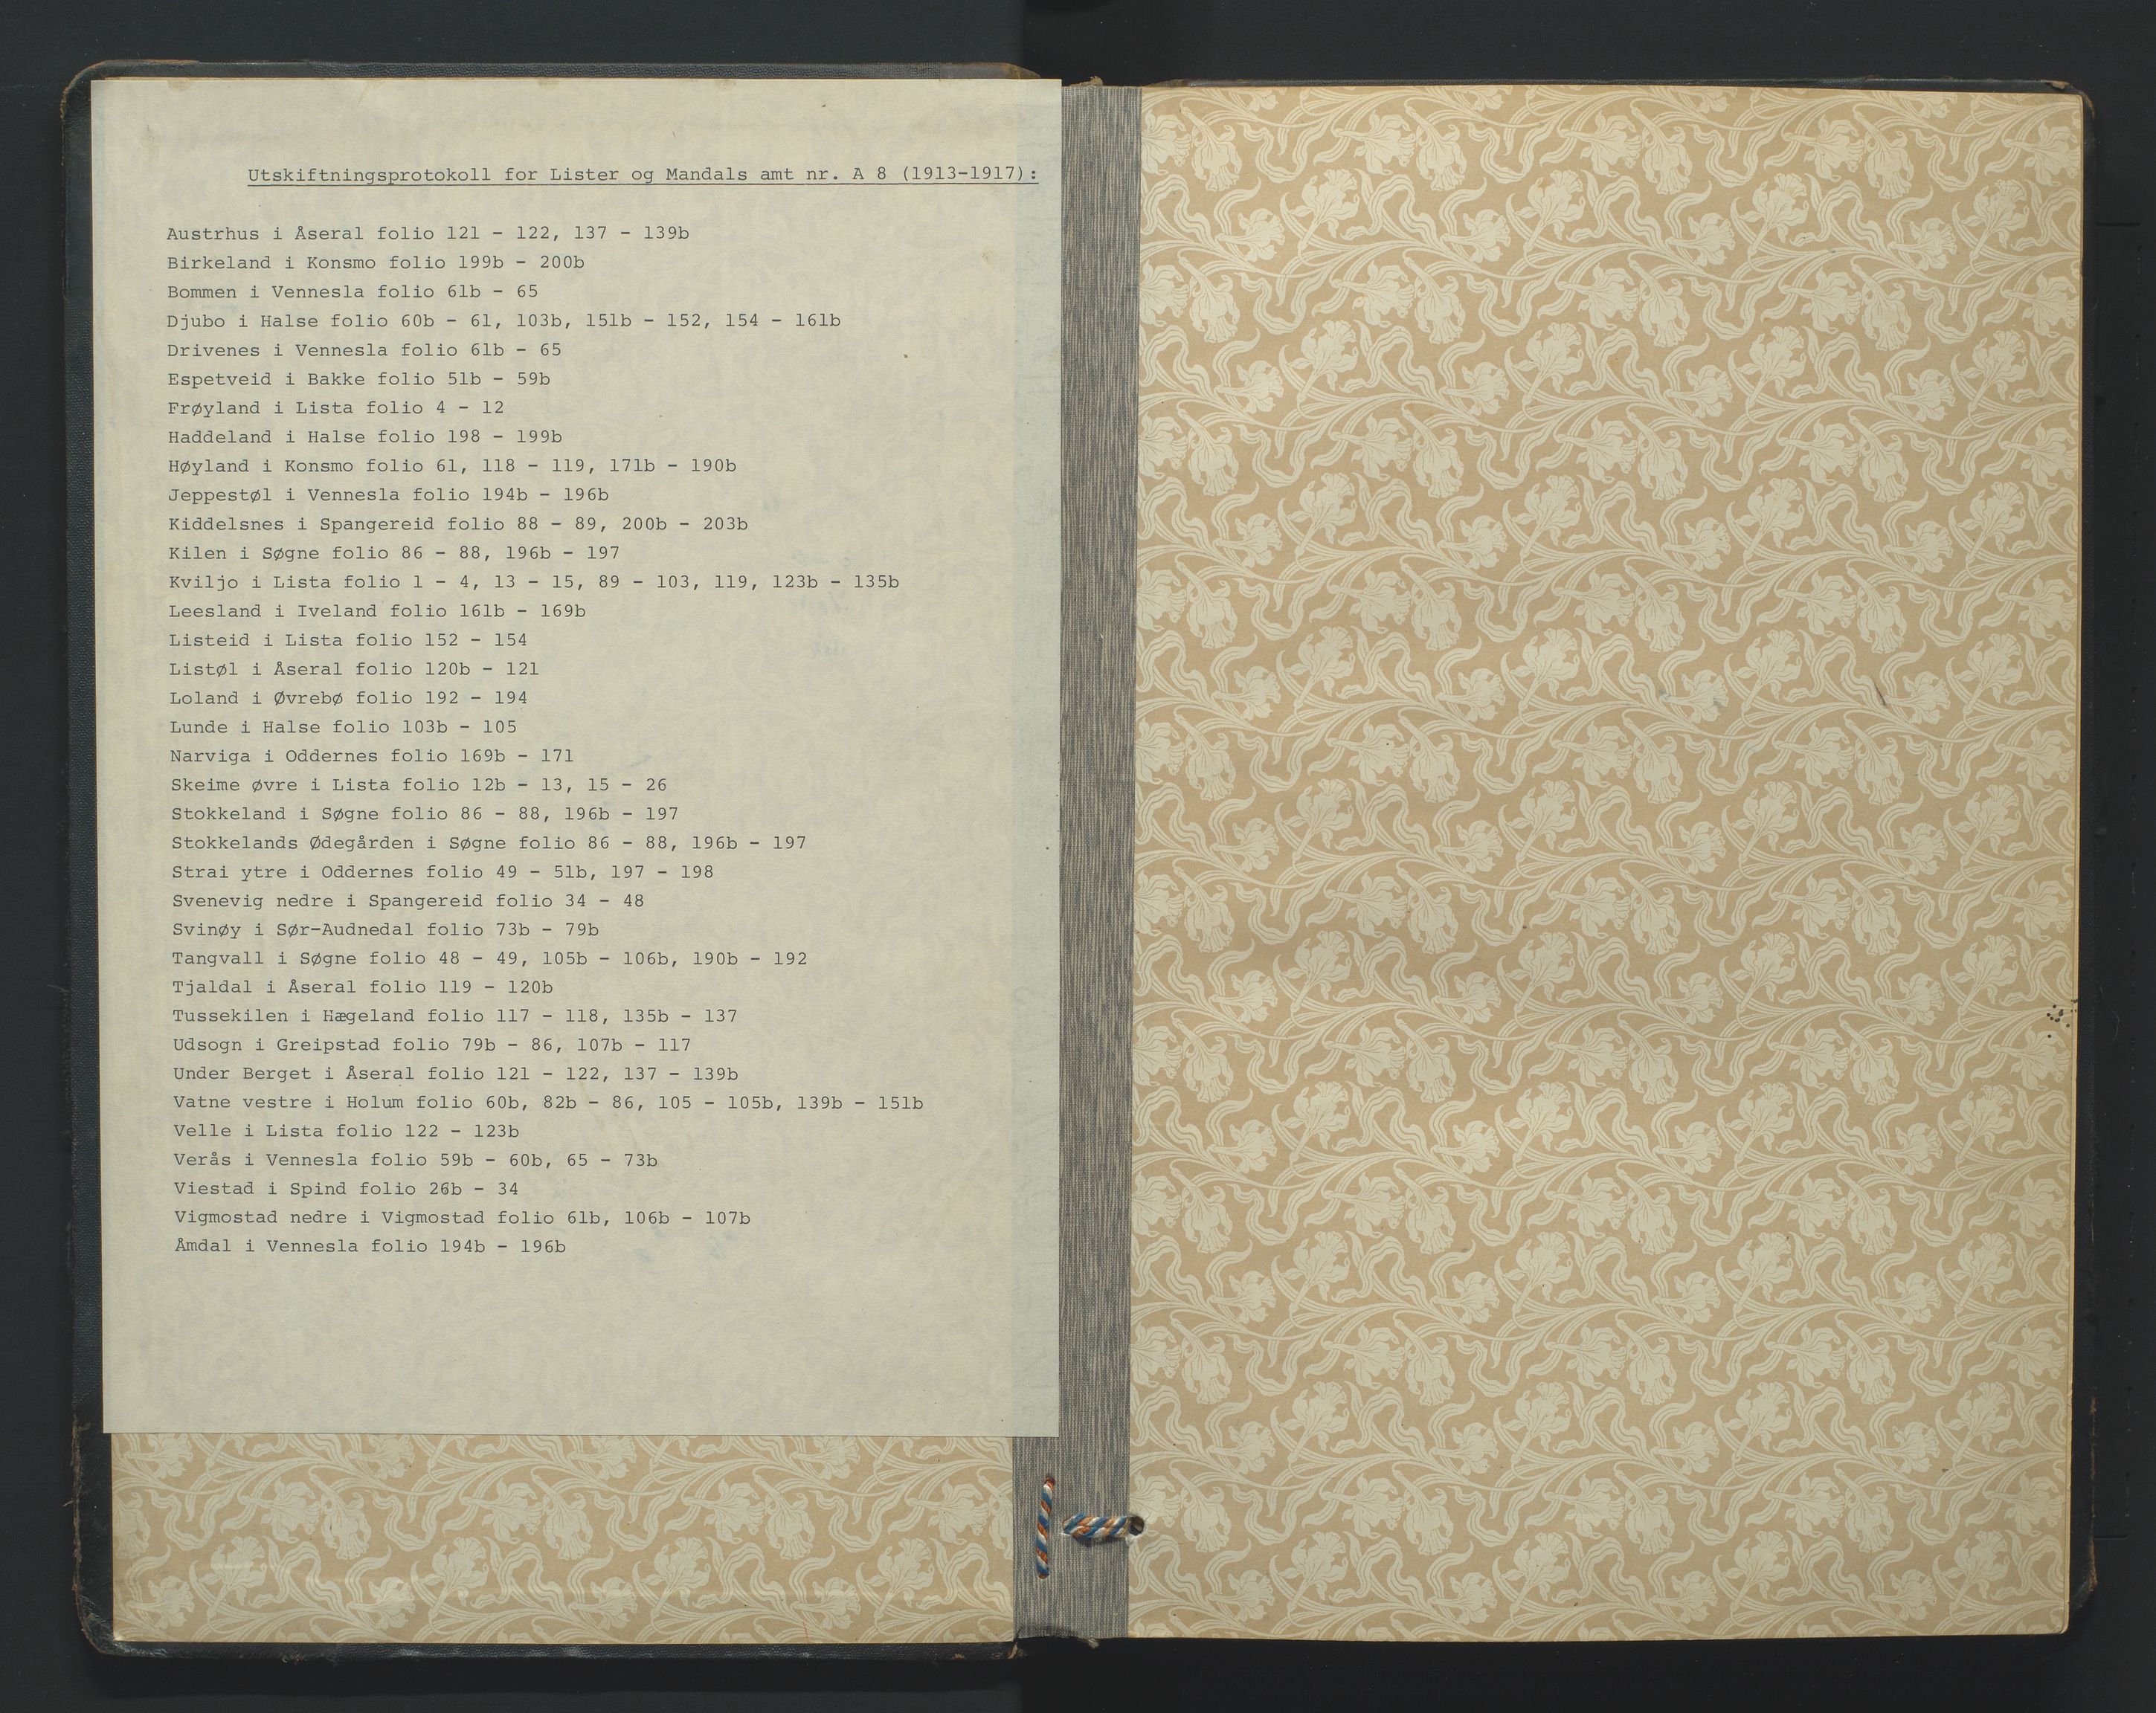 Utskiftningsprotokoll for Lister og Mandals amt nr. A 8 (1913-1917):
Austrhus i Åseral folio 121 - 122, 137 - 139b
Birkeland i Konsmo folio 199b - 200b
Bommen i Vennesla folio 61b - 65
Djubo i Halse folio 60b - 61, 103b, 151b - 152, 154 - 161b
Drivenes i Vennesla folio 61b - 65
Espetveid i Bakke folio 51b - 59b
Frøyland i Lista folio 4 - 12
Haddeland i Halse folio 198 - 199b
Høyland i Konsmo folio 61, 118 - 119, 171b - 190b
Jeppestøl i Vennesla folio 194b - 196b
Kiddelsnes i Spangereid folio 88 - 89, 200b - 203b
Kilen i Søgne folio 86 - 88, 196b - 197
Kviljo i Lista folio 1 - 4, 13 - 15, 89 - 103, 119, 123b - 135b
Leesland i Iveland folio 161b - 169b
Listeid i Lista folio 152 - 154
Listøl i Åseral folio 120b - 121
Loland i Øvrebø folio 192 - 194
Lunde i Halse folio 103b - 105
Narviga i Oddernes folio 169b - 171
Skeime øvre i Lista folio 12b - 13, 15 - 26
Stokkeland i Søgne folio 86 - 88, 196b - 197
Stokkelands Ødegården i Søgne folio 86 - 88, 196b - 197
Strai ytre i Oddernes folio 49 - 51b, 197 - 198
Svenevig nedre i Spangereid folio 34 - 48
Svinøy i Sør-Audnedal folio 73b - 79b
Tangvall i Søgne folio 48 - 49, 105b - 106b, 190b - 192
Tjaldal i Åseral folio 119 - 120b
Tussekilen i Hægeland folio 117 - 118, 135b - 137
Udsogn i Greipstad folio 79b - 86, 107b - 117
Under Berget i Åseral folio 121 - 122, 137 - 139b
Vatne vestre i Holum folio 60b, 82b - 86, 105 - 105b, 139b - 151b
Velle i Lista folio 122 - 123b
Verås i Vennesla folio 59b - 60b, 65 - 73b
Viestad i Spind folio 26b - 34
Vigmostad nedre i Vigmostad folio 61b, 106b - 107b
Åmdal i Vennesla folio 194b - 196b